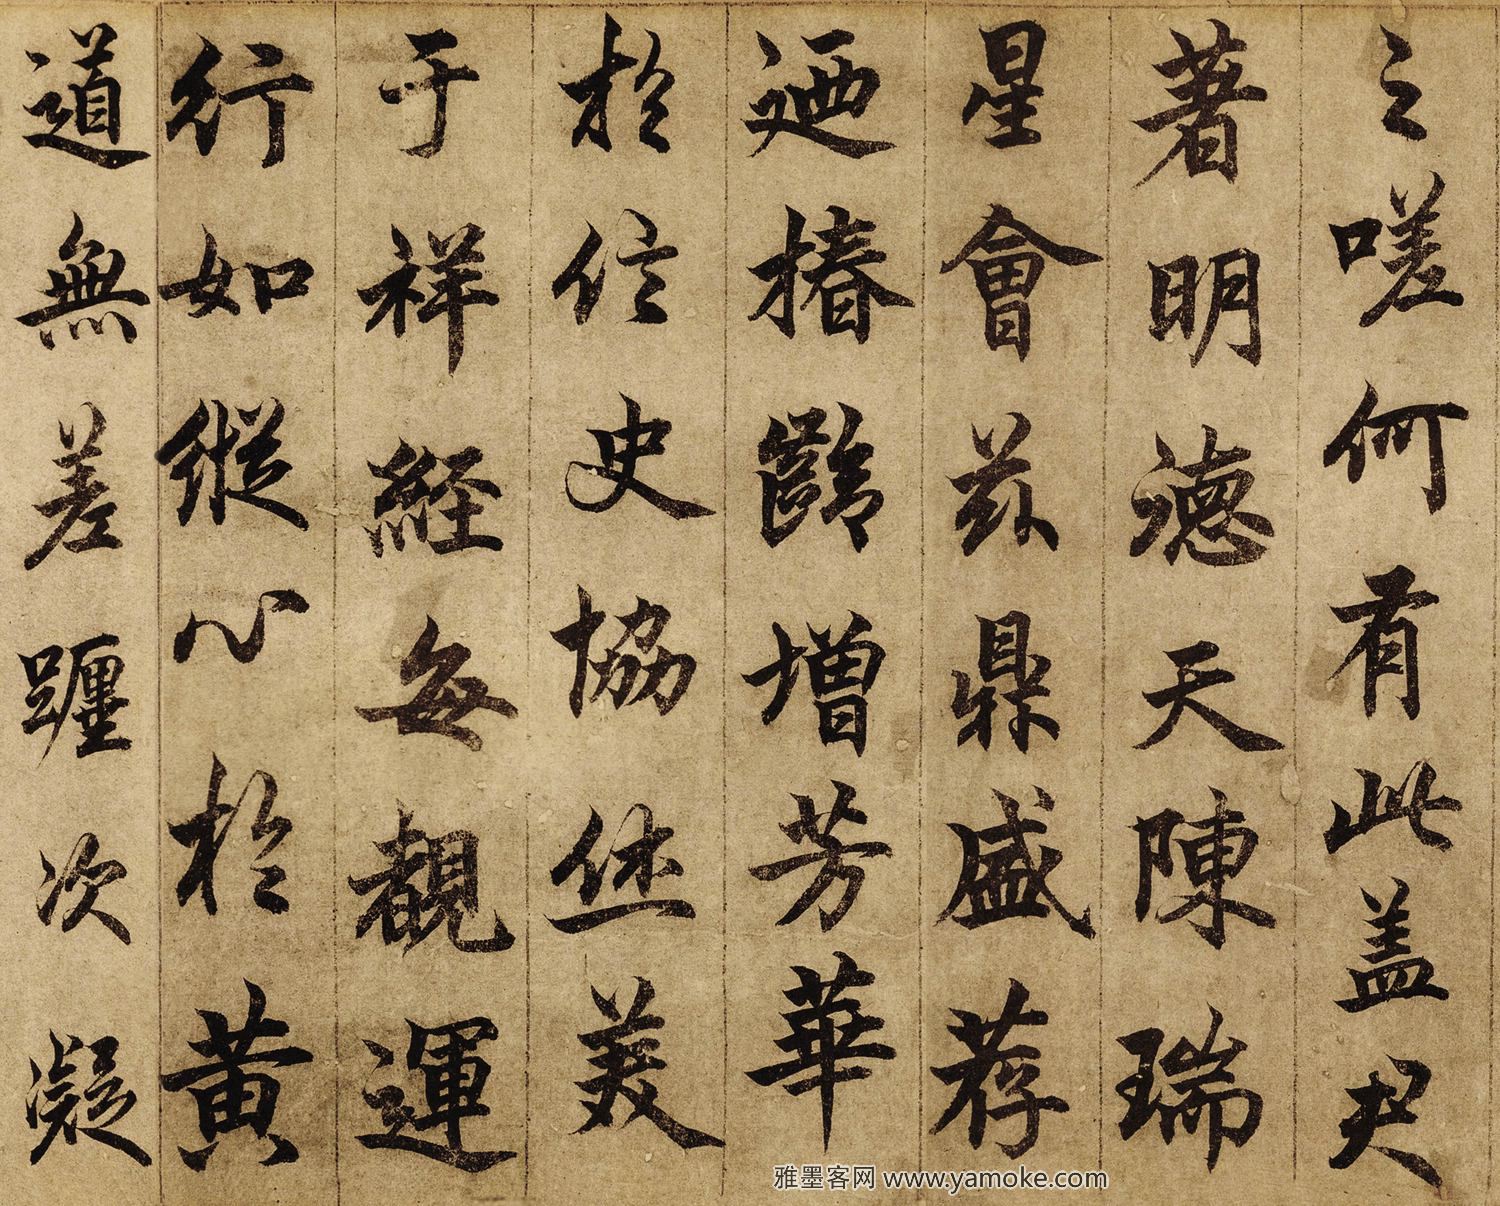 之嗟何有此盖天
著明德天陳瑞
星會茲鼎盛荐
迺椿齡增芳華
於信史協休美
于祥經每觀運
行如縱心於黃
道無差躔次凝
雅墨客网 www.yamoke.com